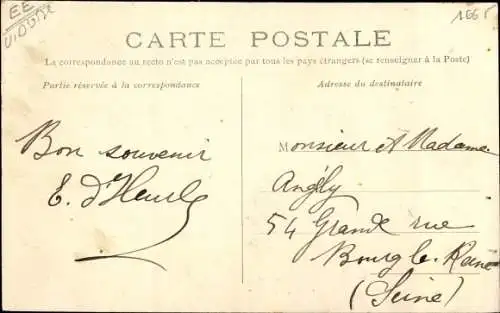 CARTE POSTALE
La correspondance au recto n'est pas acceptée par tous les pays étrangers (se renseigner à la Poste)
Partie réservée à la correspondance
Adresse du destinataire
Bon souvenir
E.
Monsieur et Madame
Angély
54 Grande rue
Bourg la Reine
(Seine)